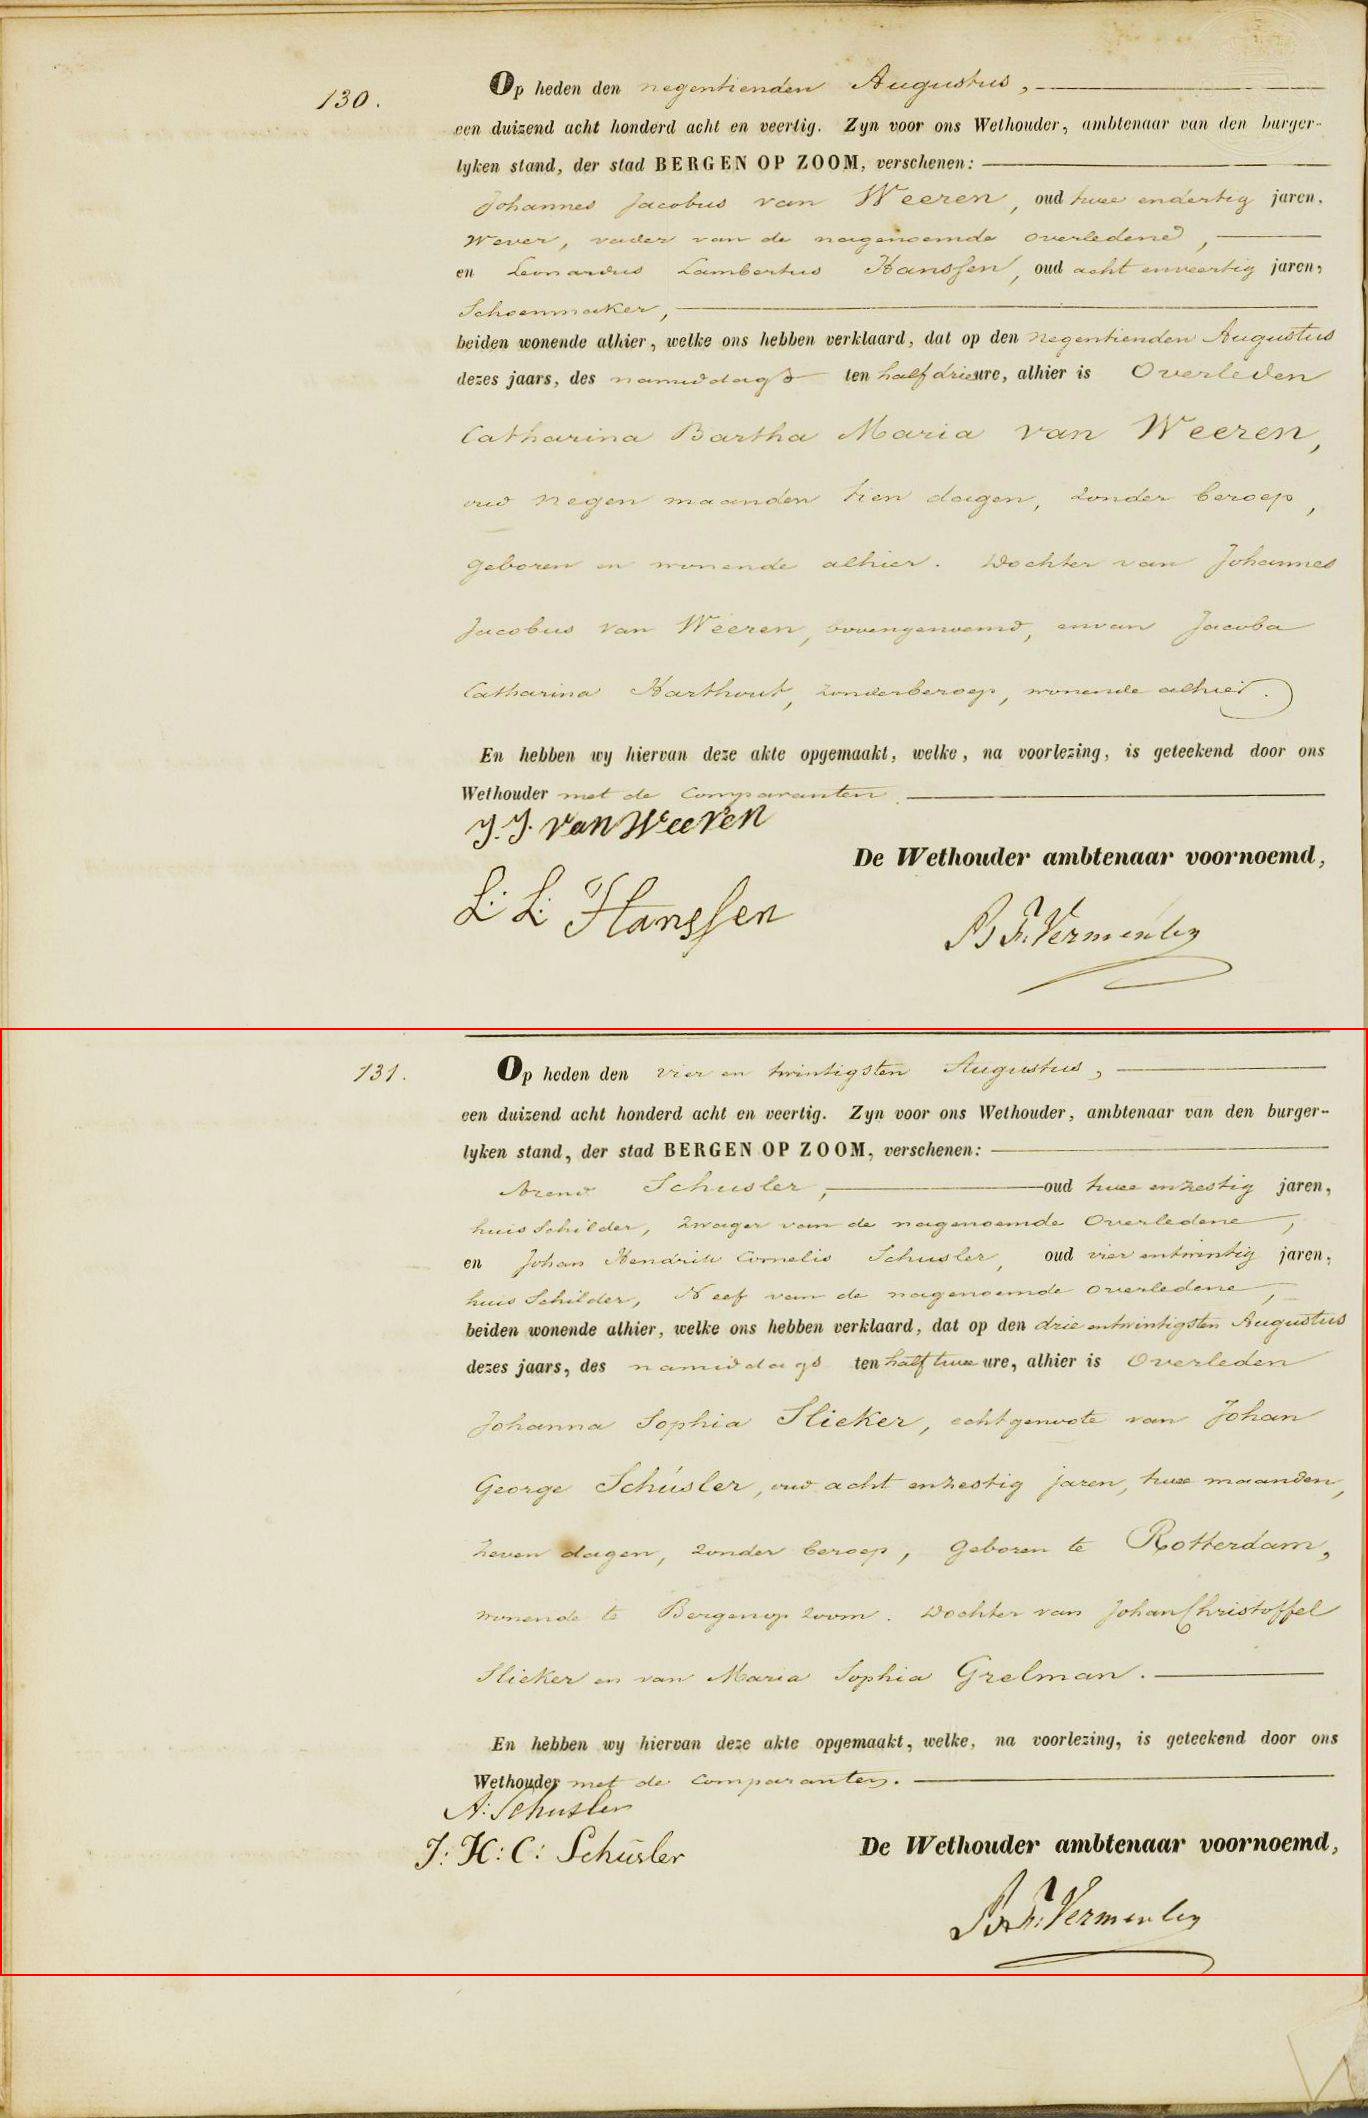 130.
Op heden den negentienden Augustus,
een duizend acht honderd acht en veertig. Zyn voor ons Wethouder, ambtenaar van den burger-
lyken stand, der stad BERGEN OP ZOOM, verschenen:
Johannes Jacobus van Weeren, oud twee endertig jaren,
Wever, vader van de nagenoemde overledene,
en Leonardus Lambertus Hanssen, oud acht enveertig jaren,
Schoenmaker,
beiden wonende alhier, welke ons hebben verklaard, dat op den negentienden Augustus
dezes jaars, des namiddags ten half drie ure, alhier is Overleden
Catharina Bartha Maria van Weeren,
oud negen maanden tien dagen, zonder beroep,
geboren en wonende alhier. Dochter van Johannes
Jacobus van Weeren, bovengenoemd, envan Jacoba
Catharina Karthout, zonderberoep, wonende alhier.
En hebben wy hiervan deze akte opgemaakt, welke, na voorlezing, is geteekend door ons
Wethouder met de Comparanten.
J. J. van Weeren
De Wethouder ambtenaar voornoemd,
L: L: Hanssen
Vermeulen
131.
Op heden den vier en twintigsten Augustus,
een duizend acht honderd acht en veertig. Zyn voor ons Wethouder, ambtenaar van den burger-
lyken stand, der stad BERGEN OP ZOOM, verschenen:
Arend Schusler, oud twee enzestig jaren,
huis Schilder, Zwager van de nagenoemde Overledene,
en Johan Hendrik Cornelis Schusler, oud vier entwintig jaren,
huis Schilder, Neef van de nagenoemde overledene,
beiden wonende alhier, welke ons hebben verklaard, dat op den drie entwintigsten Augustus
dezes jaars, des namiddags ten half twee ure, alhier is Overleden
Johanna Sophia Slieker, echtgenoote van Johan
George Schüsler, oud acht enzestig jaren, twee maanden,
zeven dagen, zonder beroep, geboren te Rotterdam,
wonende te Bergenop zoom. Dochter van Johan Christoffel
Slieker en van Maria Sophia Grelman.
En hebben wy hiervan deze akte opgemaakt, welke, na voorlezing, is geteekend door ons
Wethouder met de Comparanten.
A: Schusler
J: H: C: Schüsler
De Wethouder ambtenaar voornoemd,
Vermeulen